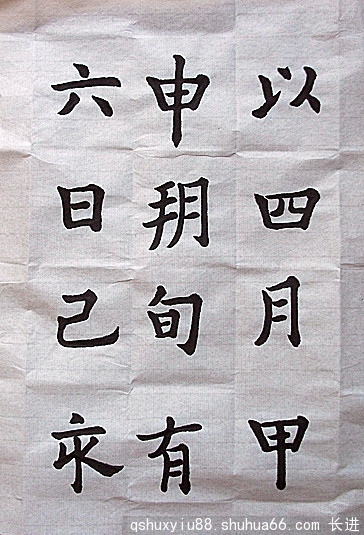 以四月甲
申朔旬有
六日己亥
qshuxyiu88.shuhua66.com 长进